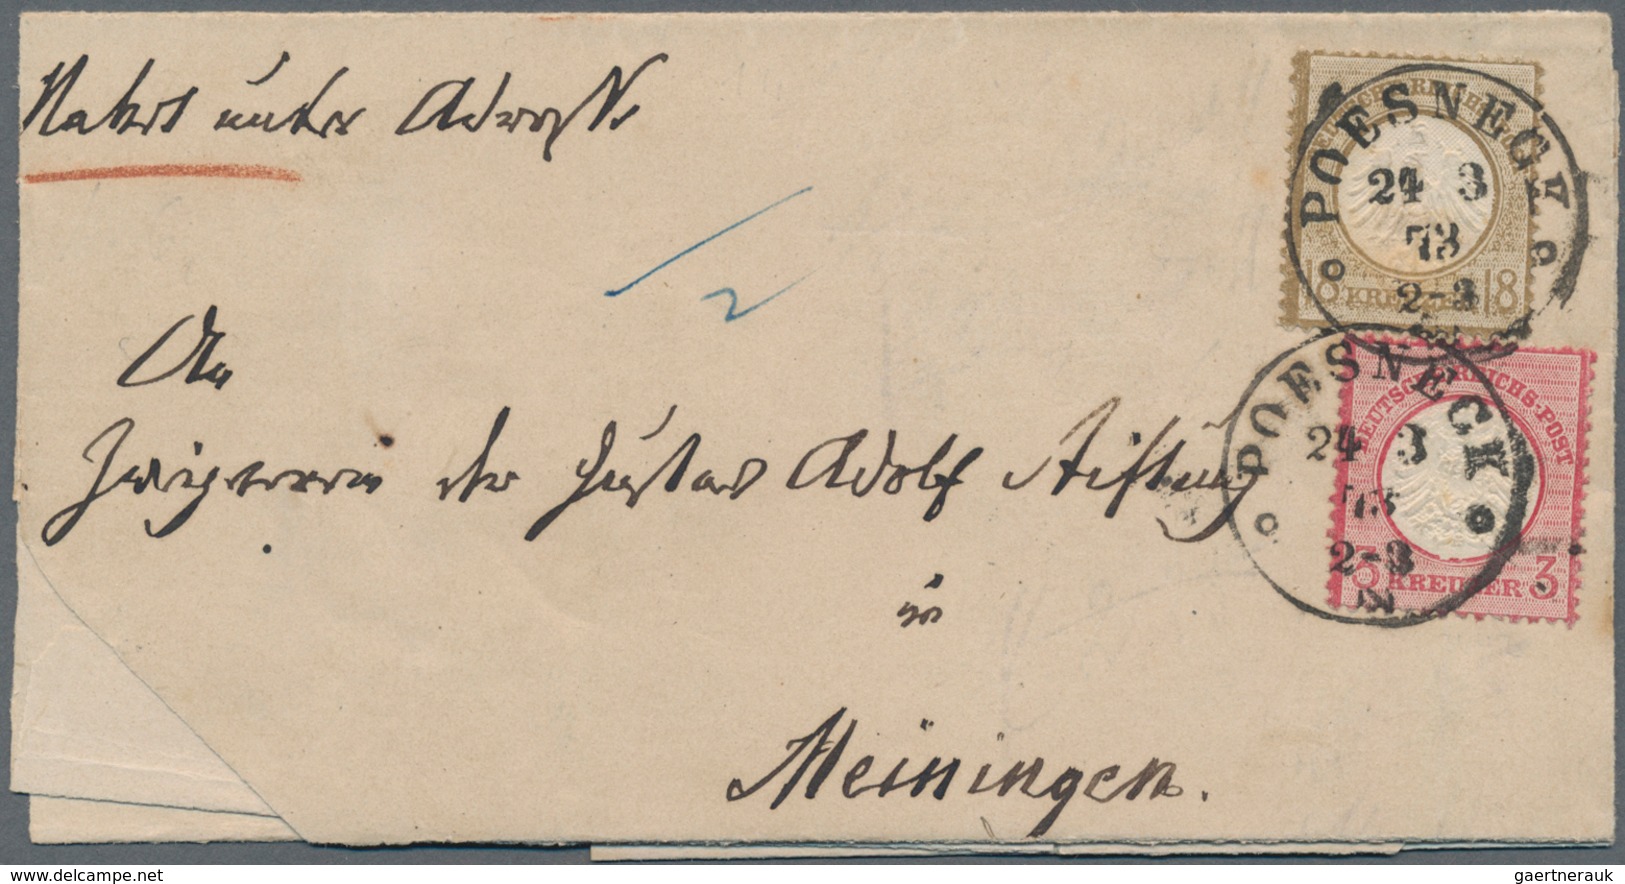 unter
POESNECK
24 3
73
2-3
DEUTSCHE REICHS-POST
18 KREUZER 18
POESNECK
24 3
73
2-3
DEUTSCHE REICHS-POST
3 KREUZER 3
2
An
Zweigverein der Gustav Adolf Stiftung
in
Meiningen.
www.delcampe.net
gaertnerauk